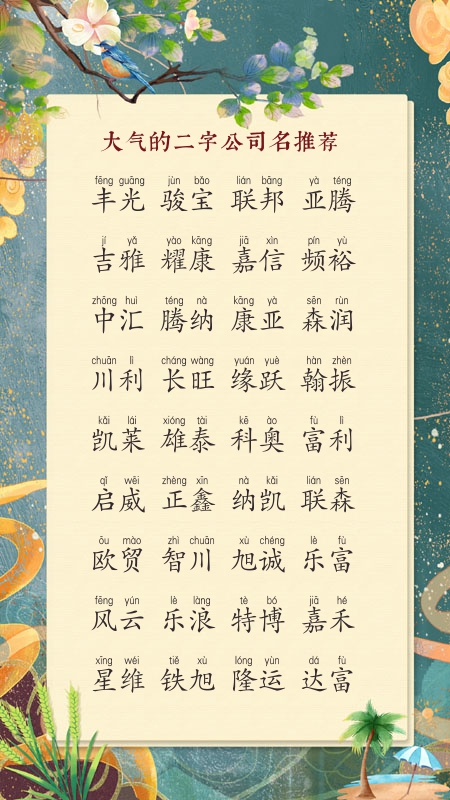 大气的二字公司名推荐
fēng guāng jùn bǎo lián bāng yà téng
丰光 骏宝 联邦 亚腾
jí yǎ yào kāng jiā xìn pín yù
吉雅 耀康 嘉信 频裕
zhōng huì téng nà kāng yà sēn rùn
中汇 腾纳 康亚 森润
chuān lì cháng wàng yuán yuè hàn zhèn
川利 长旺 缘跃 翰振
kǎi lái xióng tài kē ào fù lì
凯莱 雄泰 科奥 富利
qǐ wēi zhèng xīn nà kǎi lián sēn
启威 正鑫 纳凯 联森
ōu mào zhì chuān xù chéng lè fù
欧贸 智川 旭诚 乐富
fēng yún lè làng tè bó jiā hé
风云 乐浪 特博 嘉禾
xīng wéi tiě xù lóng yùn dá fù
星维 铁旭 隆运 达富